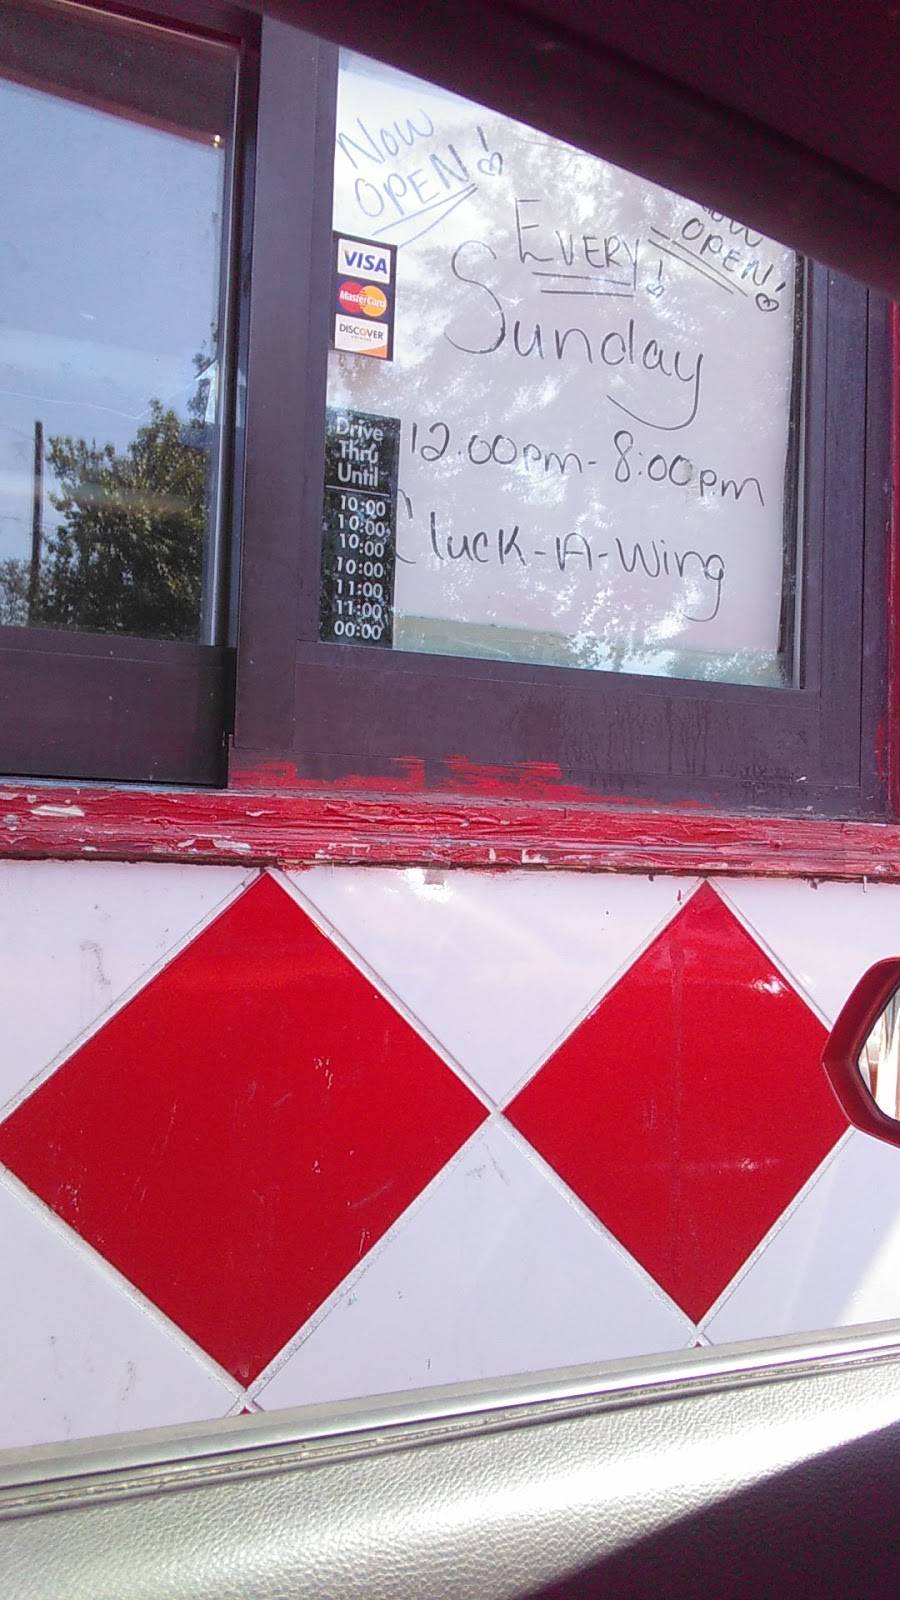 Now
OPEN!
Now
OPEN!
EVERY!
Sunday
12.00pm-8:00pm
Cluck-A-Wing
VISA
MasterCard
DISCOVER
NETWORK
Drive
Thru
Until
10:00
10:00
10:00
10:00
11:00
11:00
00:00